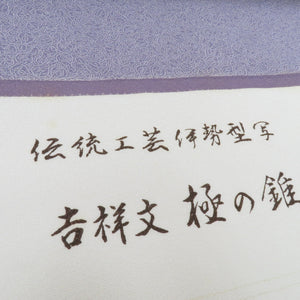 伝統工芸伊勢型写
吉祥文 極の錐